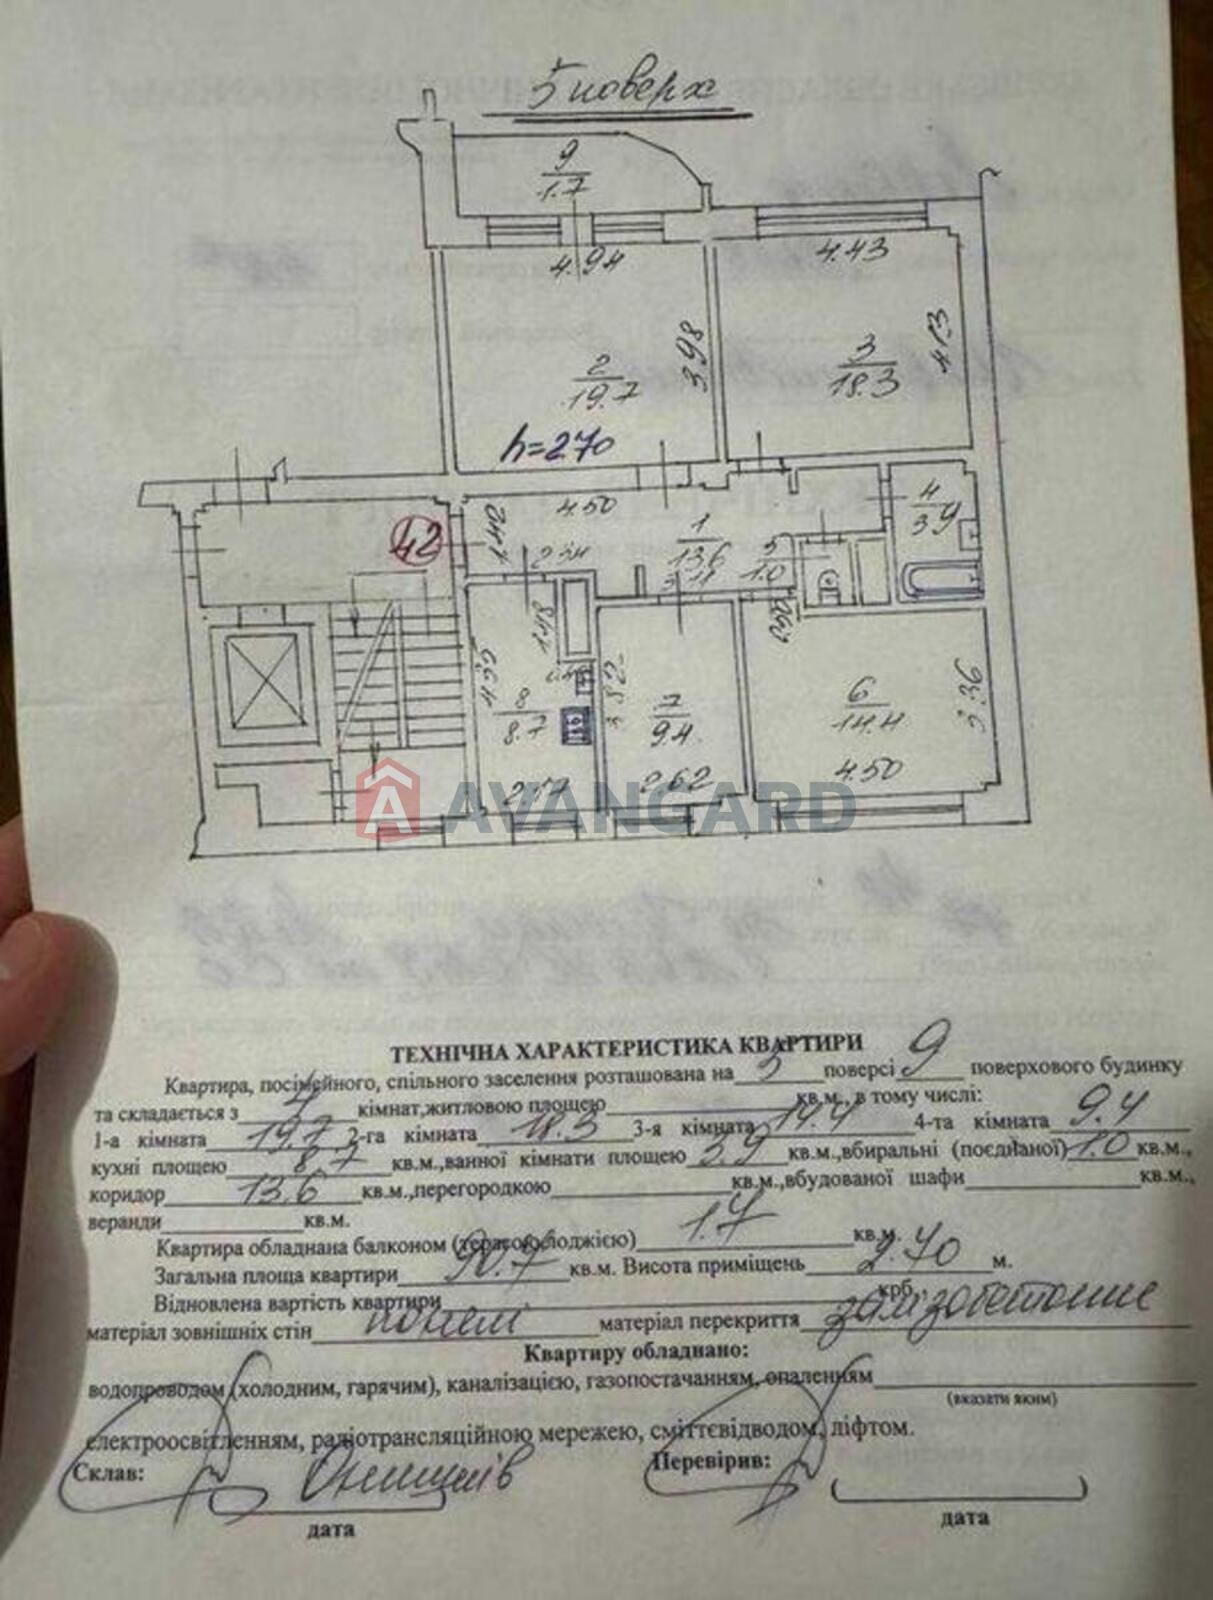 5 поверх
9
1.7
4.94
4.43
3.98
4.13
2
19.7
3
18.3
h=2.70
4.50
42
1
13.6
4
3.9
5
1.0
2.34
3.11
8
8.7
7
9.4
6
14.4
3.36
2.62
4.50
AVANGARD
ТЕХНІЧНА ХАРАКТЕРИСТИКА КВАРТИРИ
Квартира, посімейного, спільного заселення розташована на 5 поверсі 9 поверхового будинку
та складається з 4 кімнат,житловою площею кв.м., в тому числі:
1-а кімната 19.7 2-га кімната 18.3 3-я кімната 14.4 4-та кімната 9.4
кухні площею 8.7 кв.м.,ванної кімнати площею 3.9 кв.м.,вбиральні (поєднаної) 1.0 кв.м.,
коридор 13.6 кв.м.,перегородкою кв.м.,вбудованої шафи кв.м.,
веранди кв.м.
Квартира обладнана балконом (терасою, лоджією) 1.7 кв.м.
Загальна площа квартири 90.7 кв.м. Висота приміщень 2.70 м.
Відновлена вартість квартири крб.,
матеріал зовнішніх стін панелі матеріал перекриття залізобетонне
Квартиру обладнано:
водопроводом (холодним, гарячим), каналізацією, газопостачанням, опаленням
(вказати яким)
електроосвітленням, радіотрансляційною мережею, сміттєвідводом, ліфтом.
Склав: Перевірив:
дата дата